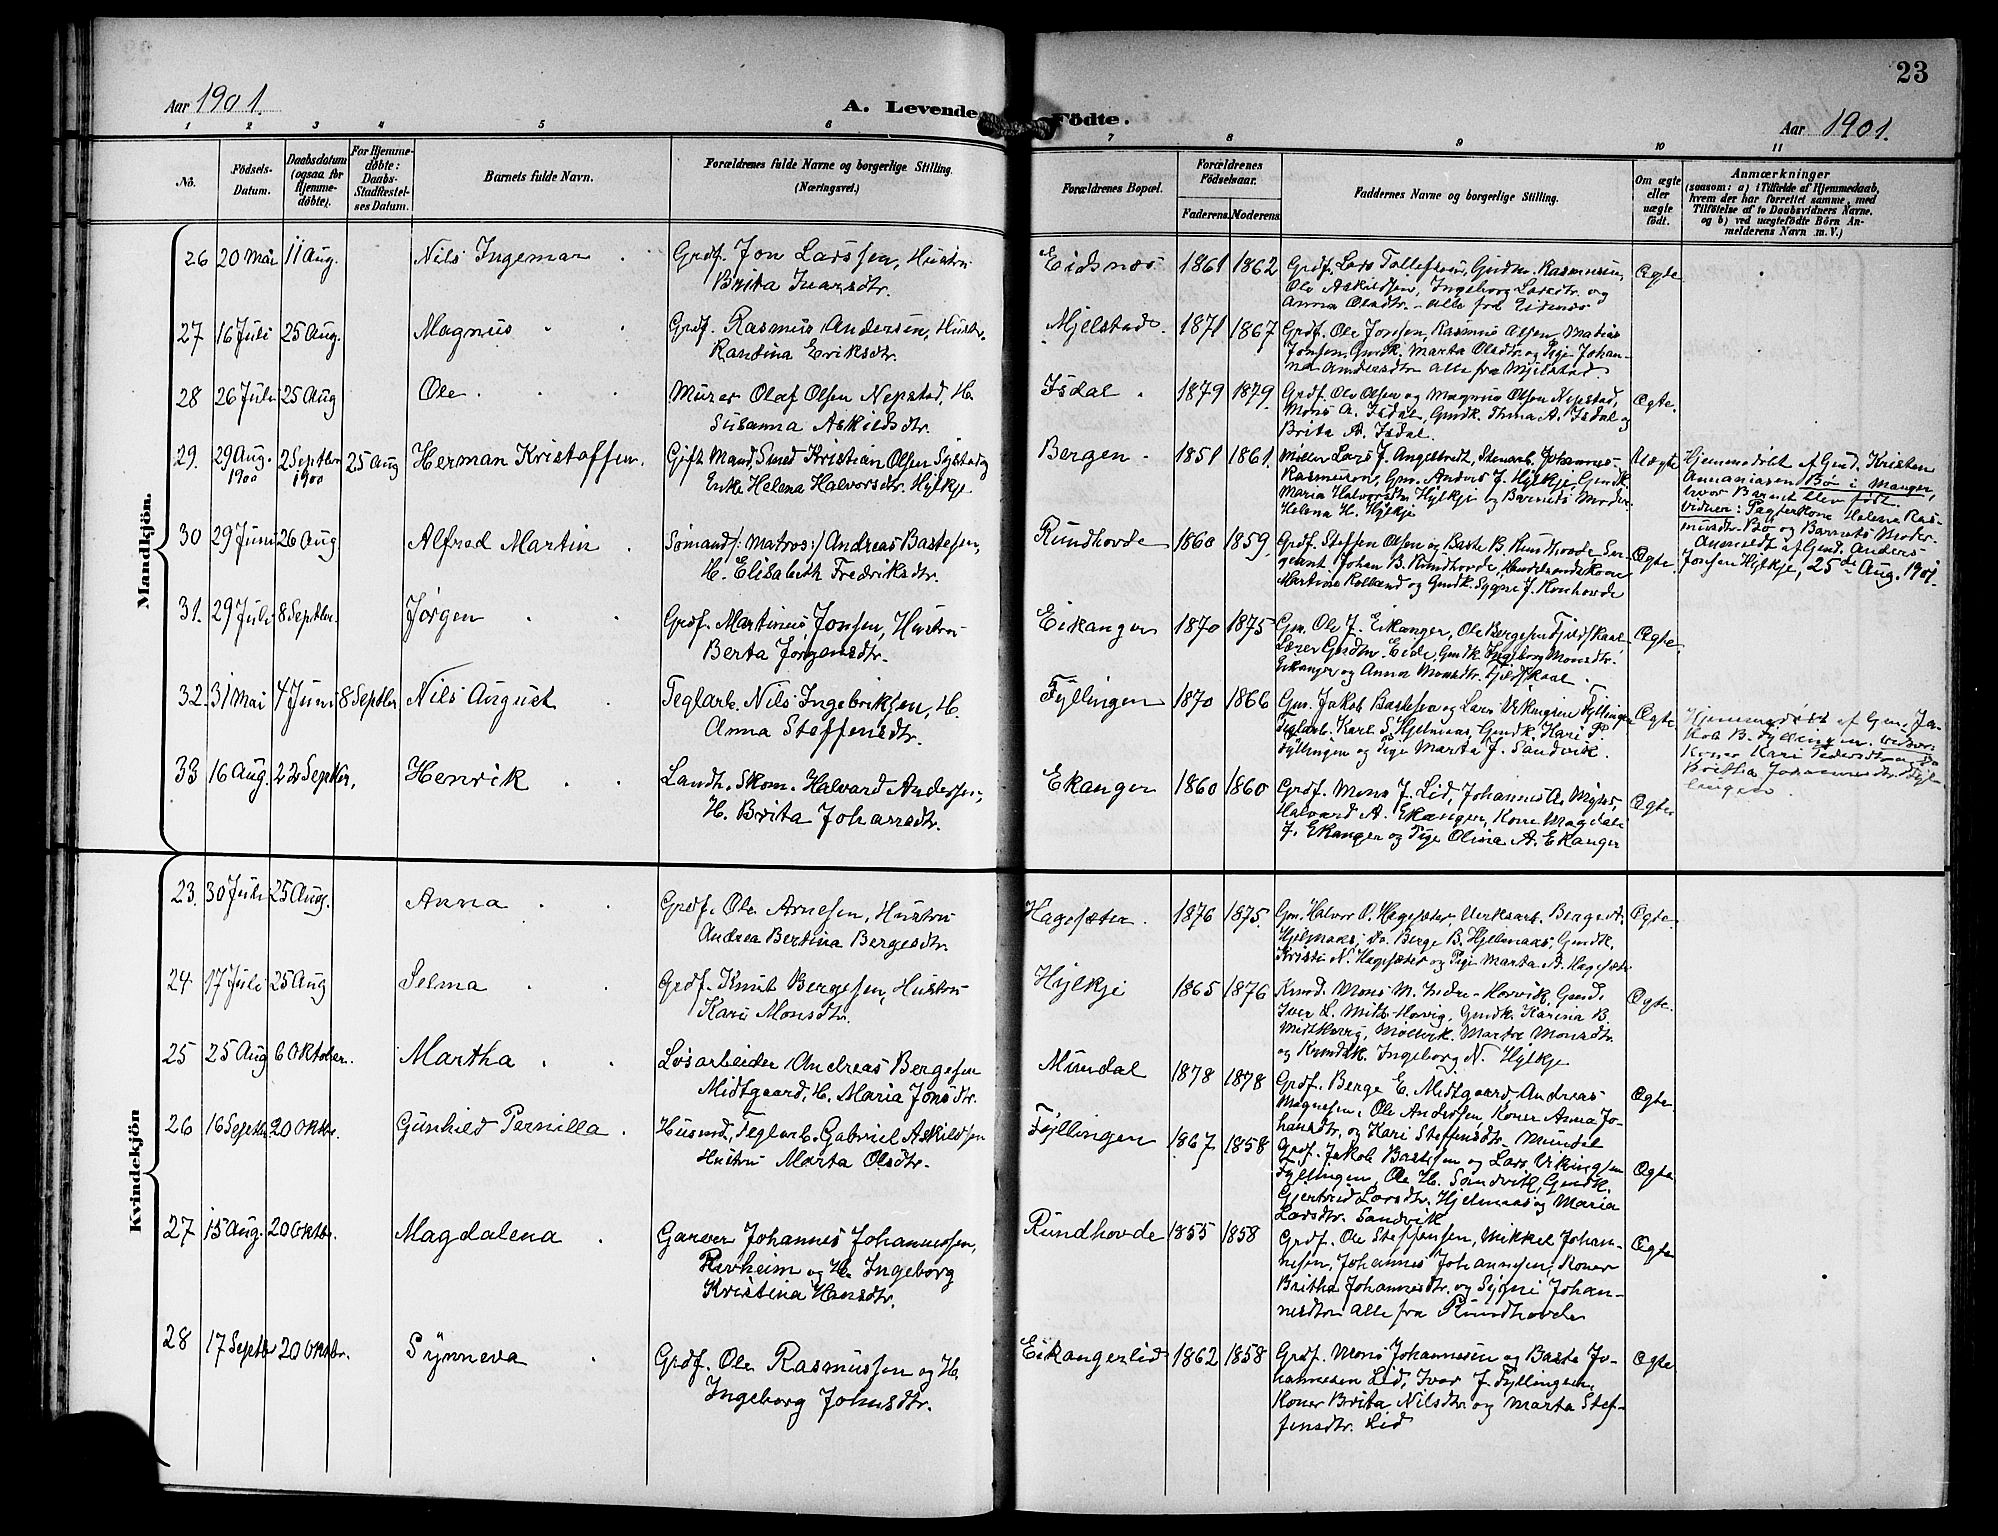 23
Aar 1901.
A. Levende Födte.
Aar 1901.
1 2 3 4 5 6 7 8 9 10 11
No.
Födsels-Datum.
Daabsdatum (ogsaa for Hjemme-døbte).
For Hjemme-døbte: Daabs-Stadfestel-ses Datum.
Barnets fulde Navn.
Forældrenes fulde Navne og borgerlige Stilling.
(Næringsvei.)
Forældrenes Bopæl.
Forældrenes Födselsaar.
Faderens. Moderens.
Faddernes Navne og borgerlige Stilling.
Om ægte eller uægte født.
Anmærkninger
(saasom: a) i Tilfælde af Hjemmedaab,
hvem der har forrettet samme, med
Tilføielse af to Daabsvidners Navne.
og b) ved uægtefødte Börn An-
melderens Navn m. V.)
Mandkjön.
26 20 Mai 11 Aug. Nils Ingemar Grdf. Jon Larssen, Hustru
Brita Ivarsdtr.
Eidsnes 1861 1862 Grdf. Lars Tollefsen, Gmdm. Rasmussen,
Ole Askildsen, Ingeborg Larsdtr. og
Anna Olsdtr. - alle fra Eidsnes
Ægte
27 16 Juli 25 Aug. Magnus Grdf. Rasmus Andersen, Hustr.
Randina Eriksdtr.
Mjelstad. 1871 1867 Grdf. Ole Jonsen, Rasmus Olsen, Matias
Jonsen, Gmdk. Marta Olsdtr. og Pige Johan-
na Andersdtr alle fra Mjelstad
Ægte.
28 26 Juli 25 Aug Ole Murer Olaf Olsen Nepstad, H.
Susanna Askildsdtr.
Isdal 1879 1879. Grdf. Ole Olsen og Magnus Olsen Nepstad,
Mons A. Isdal, Gmdk. Thina A. Isdal og
Brita A. Isdal.
Ægte.
29. 29 Aug. 1900 2 Septbr 1900 25 Aug Herman Kristoffer. Gift Mand, Smed Kristian Olsen Sylstad og
Enke Helena Halvorsdtr. Hylkje
Bergen 1851 1861. Møller Lars J. Angeltvedt, Stenarb. Johannes
Rasmusson, Gm. Anders J. Hylkje, Gmdk.
Maria Halvorsdtr Hylkje og Barnets Moder
Helena H. Hylkje
Uægte Hjemmedöbt af Gmd. Kristen
Annaniasen Bø i Manger,
hvor Barnet blev født
vidner: Pagterkone Helene Ras-
musdtr. Bø og Barnets Moder.
Anmeldt af Gmd. Anders
Jonsen Hylkje, 25de Aug. 1901.
30 29 Juni 26 Aug. Alfred Martin Sømand /: Matros:/ Andreas Bastesen,
H. Elisabeth Fredriksdtr.
Rundhovde 1860 1859. Grdf. Steffen Olsen og Baste B. Rundhovde Ser-
geant Johan B. Rundhovde, Handelsmandskone
Martine Kolland og Gmdk. Sygni J. Ronhovde
Ægte.
31. 29 Juli 8 Septbr. Jørgen Grdf. Martinus Jonsen, Hustru
Berta Jørgensdtr.
Eikanger 1870 1875 Gm. Ole J. Eikanger, Ole Bergesen Fjeldskaal
Lærer Gmdm. Eide, Gmdk. Ingeborg Monsdtr.
Eikanger og Anna Monsdtr. Fjeldskaal
Ægte.
32. 31 Mai 4 Juni 8 Septbr Nils August Teglarb. Nils Ingebriktsen, H.
Anna Steffensdtr.
Fyllingen 1870 1866 Gm. Jakob Bastesen og Lars Vikingsen Fyllingen
Teglarb. Karl S. Hjelmaas, Gmdk. Kari P.
Fyllingen og Pige Marta J. Sandvik.
Ægte. Hjemmedöbt af Gm. Ja-
kob B. Fyllingen. vidner
Koner Kari Pedersdtr og
Britha Johannesdtr. Fyl-
lingen.
33 16 Aug. 22 Septbr, Henrik Landh. Skom. Halvard Andersen,
H. Brita Johansdtr.
Ekanger 1860 1860 Grdf. Mons J. Lid, Johannes A. Myhr,
Halvard A. Ekanger, Kone Magdeli
J. Ekanger og Pige Olina A. Ekanger
Ægte
Kvindekjön
23. 30 Juli 25 Aug. Anna Grdf. Ole Arnesen, Hustru
Andrea Bertina Bergesdtr.
Hagesæter. 1876 1875. Gm. Halvor O. Hagesæter, Verksarb. Berge A.
Hjelmaas, Do. Berge B. Hjelmaas, Gmdk.
Kristi N. Hagesæter og Pige Marta A. Hagesæter
Ægte.
24 17 Juli 25 Aug Selma Grdf. Knut Bergesen, Hustru
Kari Monsdtr.
Hylkje 1865 1876 Krmd. Mons M. Indre-Horvik, Gmd.
Iver L. Midt-Horvig, Gmdk. Karina B.
Midthorvig, Møllerk. Marta Monsdtr
og Krmdsk. Ingeborg N. Hylkje
Ægte.
25 25 Aug 6 Oktober. Martha Løsarbeider Andreas Bergesen
Midtgaard, H. Maria Jonsdtr.
Mundal 1878 1878 Grdf. Berge E. Midtgaard, Andreas
Magnesen, Ole Andersen, Koner Anna Jo-
hansdtr. og Kari Steffensdtr. Mundal
Ægte.
26 16 Septbr 20 Oktbr. Gunhild Pernilla. Husmd, Teglarb. Gabriel Askildsen
Hustru Marta Olsdtr.
Fyllingen 1867 1858 Grdf. Jakob Bastesen og Lars Vikingsen
Fyllingen, Ole H. Sandvik, Gmdk.
Gjertrud Larsdtr. Hjelmaas og Maria
Larsdtr. Sandvik
Ægte
27 15 Aug. 20 Oktbr. Magdalena Garver Johannes Johannessen,
Revheim og H. Ingeborg
Kristina Hansdtr.
Rundhovde 1855 1858 Grdf. Ole Steffensen, Mikkel Johan-
nesen, Johannes Johannesen, Koner
Britha Johannesdtr. og Sygni Johan-
nesdtr alle fra Rundhovde
Ægte
28 17 Septbr 20 Oktbr. Synneva Grdf. Ole Rasmussen og H.
Ingeborg Johnsdtr.
Eikangerlid 1862 1858 Grdf. Mons Johannesen og Baste Jo-
hannesen Lid, Ivar J. Fyllingen,
Koner Brita Nilsdtr og Marta Stef-
fensdtr. Lid
Ægte